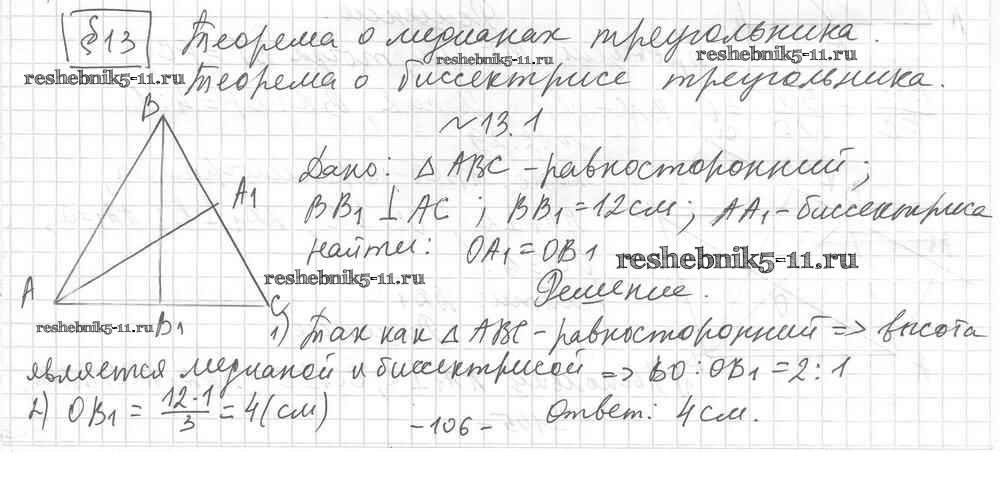 §13 Теорема о медианах треугольника.
reshebnik5-11.ru reshebnik5-11.ru reshebnik5-11.ru
Теорема о биссектрисе треугольника.
№13.1
B
Дано: △ ABC - равносторонний;
A1
BB1 ⊥ AC ; BB1 = 12 см; AA1 - биссектриса
Найти: OA1 = OB1
reshebnik5-11.ru reshebnik5-11.ru
A
C
Решение.
reshebnik5-11.ru
B1
1) Так как △ ABC - равносторонний => высота
является медианой и биссектрисой => BO : OB1 = 2 : 1
2) OB1 = 12·1/3 = 4 (см)
Ответ: 4 см.
-106-